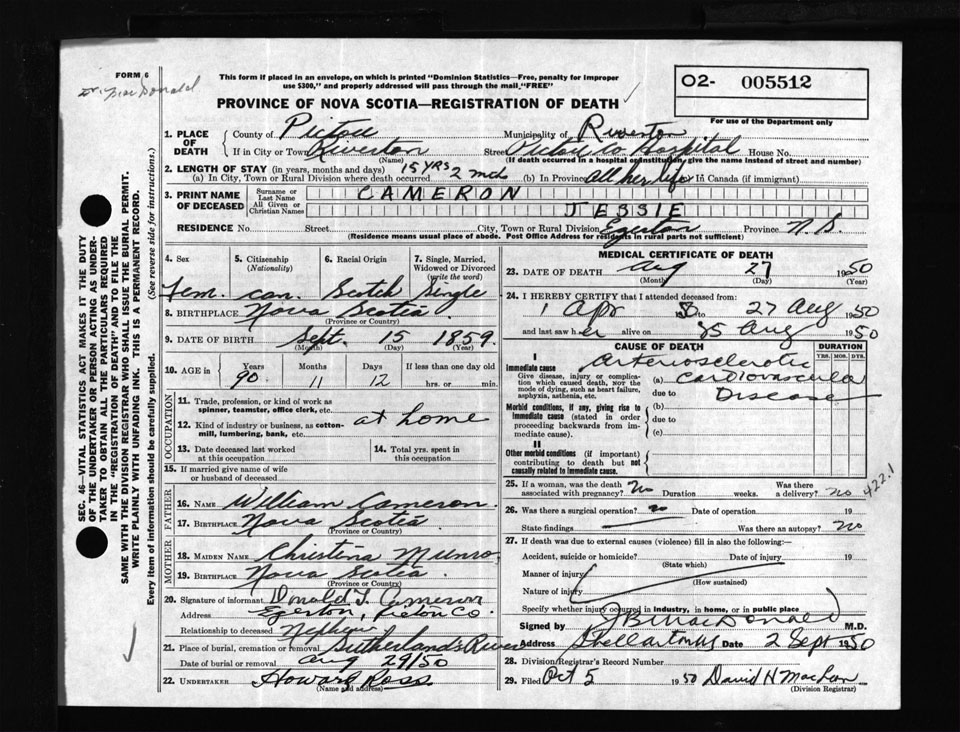 FORM 6
Dr. MacDonald
This form if placed in an envelope, on which is printed "Dominion Statistics—Free, penalty for improper
use $300," and properly addressed will pass through the mail "FREE"
PROVINCE OF NOVA SCOTIA—REGISTRATION OF DEATH
O2- 005512
For use of the Department only
1. PLACE OF DEATH
County of Pictou Municipality of Riverton
If in City or Town Riverton Street Pictou Co Hospital House No.
(Name) (If death occurred in a hospital or institution, give the name instead of street and number)
2. LENGTH OF STAY (in years, months and days)
(a) In City, Town or Rural Division where death occurred 15 YRS 2 mos (b) In Province all her life In Canada (if immigrant)
3. PRINT NAME OF DECEASED
Surname or Last Name CAMERON
All Given or Christian Names JESSIE
RESIDENCE No. Street City, Town or Rural Division Egerton Province N.S.
(Residence means usual place of abode. Post Office Address for residents in rural parts not sufficient)
4. Sex 5. Citizenship (Nationality) 6. Racial Origin 7. Single, Married, Widowed or Divorced (write the word)
Fem. can. Scotch Single
8. BIRTHPLACE Nova Scotia
(Province or Country)
9. DATE OF BIRTH Sept. 15 1859
(Month) (Day) (Year)
10. AGE in Years Months Days If less than one day old
90 11 12 hrs. or min.
OCCUPATION
11. Trade, profession, or kind of work as
spinner, teamster, office clerk, etc.
12. Kind of industry or business, as cotton-
mill, lumbering, bank, etc.
at home
13. Date deceased last worked
at this occupation
14. Total yrs. spent in
this occupation
15. If married give name of wife
or husband of deceased
FATHER
16. NAME William Cameron
17. BIRTHPLACE Nova Scotia
(Province or Country)
MOTHER
18. MAIDEN NAME Christina Munro
19. BIRTHPLACE Nova Scotia
(Province or Country)
20. Signature of informant Donald T. Cameron
Address Egerton, Pictou Co
Relationship to deceased Nephew
21. Place of burial, cremation or removal Sutherland's River
Date of burial or removal Aug 29/50
22. UNDERTAKER Howard Ross
(Name and address)
MEDICAL CERTIFICATE OF DEATH
23. DATE OF DEATH Aug 27 1950
(Month) (Day) (Year)
24. I HEREBY CERTIFY that I attended deceased from:
1 Apr 50 to 27 Aug 1950
and last saw her alive on 25 Aug 1950
CAUSE OF DEATH DURATION
YRS. MOS. DYS.
I
Immediate cause
Give disease, injury or complica-
tion which caused death, NOT the
mode of dying, such as heart failure,
asphyxia, asthenia, etc.
Arteriosclerotic
(a) Cardiovascular
due to Disease
Morbid conditions, if any, giving rise to
immediate cause (stated in order
proceeding backwards from im-
mediate cause).
(b)
due to
(c)
II
Other morbid conditions (if important)
contributing to death but not
causally related to immediate cause.
422.1
25. If a woman, was the death
associated with pregnancy? No Duration weeks. Was there
a delivery? no
26. Was there a surgical operation? no Date of operation 19
State findings Was there an autopsy? No
27. If death was due to external causes (violence) fill in also the following:—
Accident, suicide or homicide? Date of injury 19
(State which)
Manner of injury
(How sustained)
Nature of injury
Specify whether injury occurred in industry, in home, or in public place
Signed by JB MacDonald M.D.
Address Stellarton NS Date 2 Sept 1950
28. Division Registrar's Record Number
29. Filed Oct 5 1950 David H MacLean
(Division Registrar)
SEC. 46—VITAL STATISTICS ACT MAKES IT THE DUTY
OF THE UNDERTAKER OR PERSON ACTING AS UNDER-
TAKER TO OBTAIN ALL THE PARTICULARS REQUIRED
IN THE "REGISTRATION OF DEATH" AND TO FILE THE
SAME WITH THE DIVISION REGISTRAR WHO SHALL ISSUE THE BURIAL PERMIT.
WRITE PLAINLY WITH UNFADING INK. THIS IS A PERMANENT RECORD.
Every item of information should be carefully supplied. (See reverse side for instructions.)